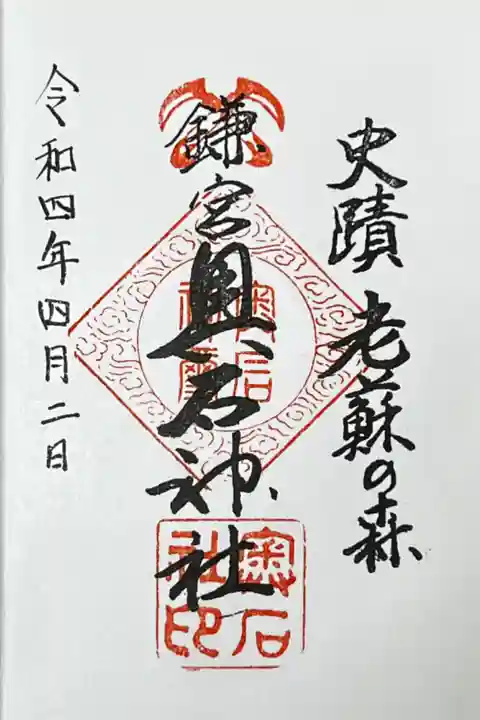 史蹟 老蘇の森
鎌宮奥石神社
令和四年四月二日
奥石
社印